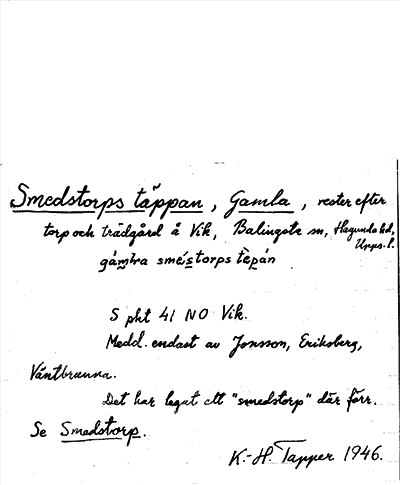 Smedstorps täppan, Gamla, rester efter
torp och trädgård å Vik, Balingsta sn, Hagunda hd,
Upps. l.
gámḷa sméistorps tèpán
S pkt 41 NO Vik.
Medd. endast av Jonsson, Eriksberg,
Väntbrunna.
Det har legat ett "smedstorp" där förr.
Se Smedstorp.
K.-H. Tapper 1946.